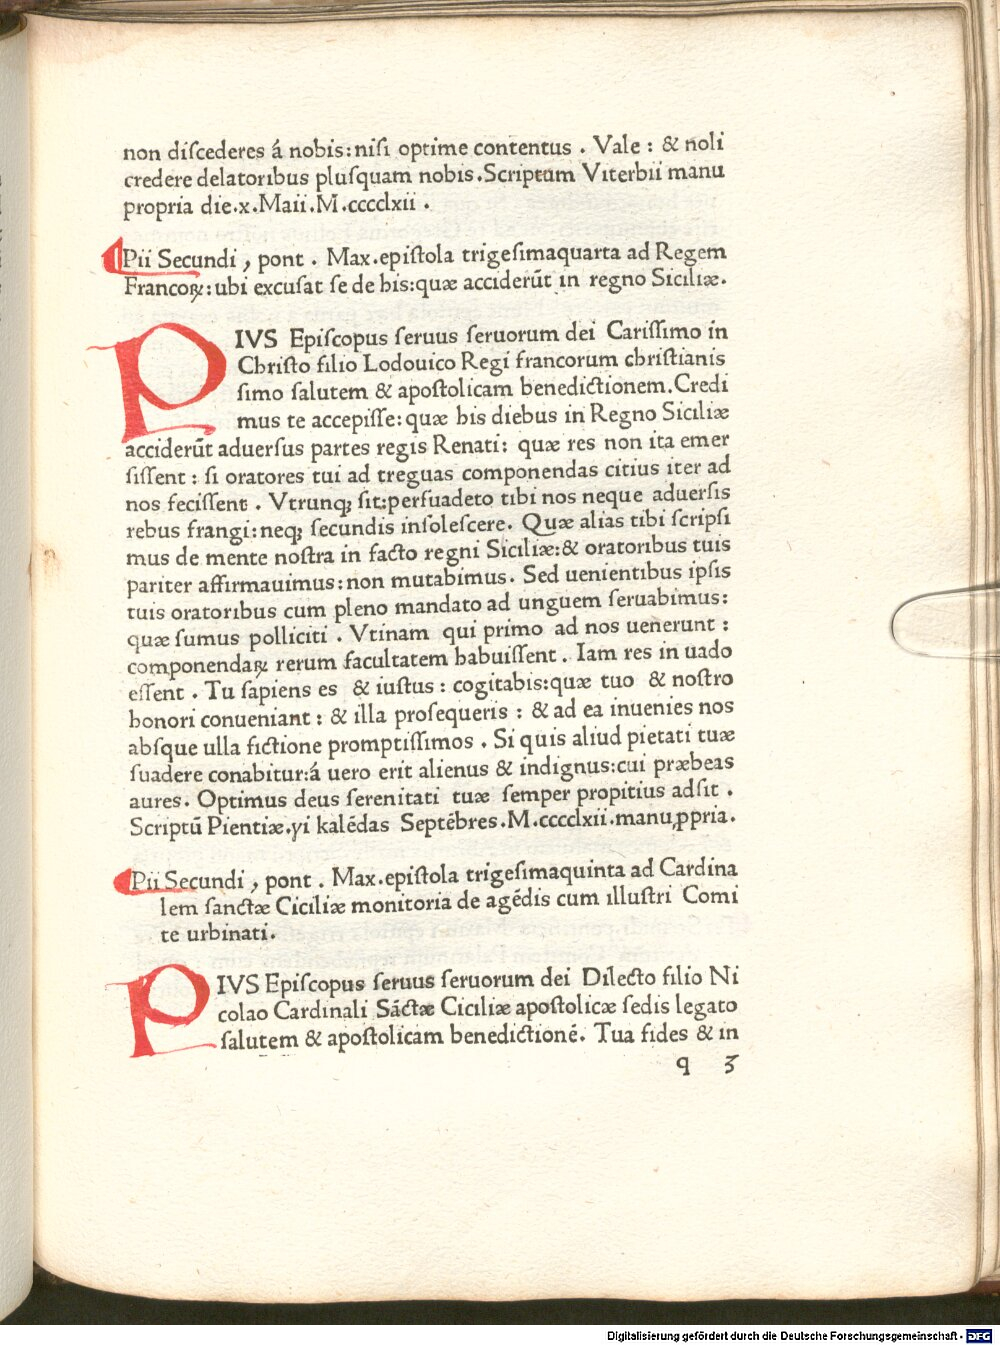 non diſcederes á nobis: niſi optime contentus . Vale : & noli
credere delatoribus pluſquam nobis. Scriptum Viterbii manu
propria die .x. Maii. M.cccclxii .
Pii Secundi , pont . Max. epiſtola trigeſimaquarta ad Regem
Francoꝝ: ubi excuſat ſe de his: quæ acciderūt in regno Siciliæ.
PIVS Epiſcopus ſeruus ſeruorum dei Cariſſimo in
Chriſto filio Lodouico Regí francorum chriſtianis
ſimo ſalutem & apoſtolicam benedictionem. Credi
mus te accepiſſe: quæ his diebus in Regno Siciliæ
acciderūt aduerſus partes regis Renati: quæ res non ita emer
ſiſſent : ſi oratores tui ad treguas componendas citius iter ad
nos feciſſent . Vtrunqꝫ ſit: perſuadeto tibi nos neque aduerſis
rebus frangi: neqꝫ ſecundis inſoleſcere. Quæ alias tibi ſcripſi
mus de mente noſtra in facto regni Siciliæ: & oratoribus tuis
pariter affirmauimus: non mutabimus. Sed uenientibus ipſis
tuis oratoribus cum pleno mandato ad unguem ſeruabimus:
quæ ſumus polliciti . Vtinam qui primo ad nos uenerunt :
componendaꝝ rerum facultatem habuiſſent . Iam res in uado
eſſent . Tu ſapiens es & iuſtus : cogitabis: quæ tuo & noſtro
honori conueniant : & illa proſequeris : & ad ea inuenies nos
abſque ulla fictione promptiſſimos . Si quis aliud pietati tuæ
ſuadere conabitur: á uero erit alienus & indignus: cui præbeas
aures. Optimus deus ſerenitati tuæ ſemper propitius adſit .
Scriptū Pientiæ. yi kalēdas Septēbres. M.cccclxii. manu ꝓpria.
Pii Secundi , pont . Max. epiſtola trigeſimaquinta ad Cardina
lem ſanctæ Ciciliæ monitoria de agēdis cum illuſtri Comi
te urbinati.
PIVS Epiſcopus ſeruus ſeruorum dei Dilecto filio Ni
colao Cardinali Sāctæ Ciciliæ apoſtolicæ ſedis legato
ſalutem & apoſtolicam benedictionē. Tua fides & in
q 3
Digitalisierung gefördert durch die Deutsche Forschungsgemeinschaft - DFG